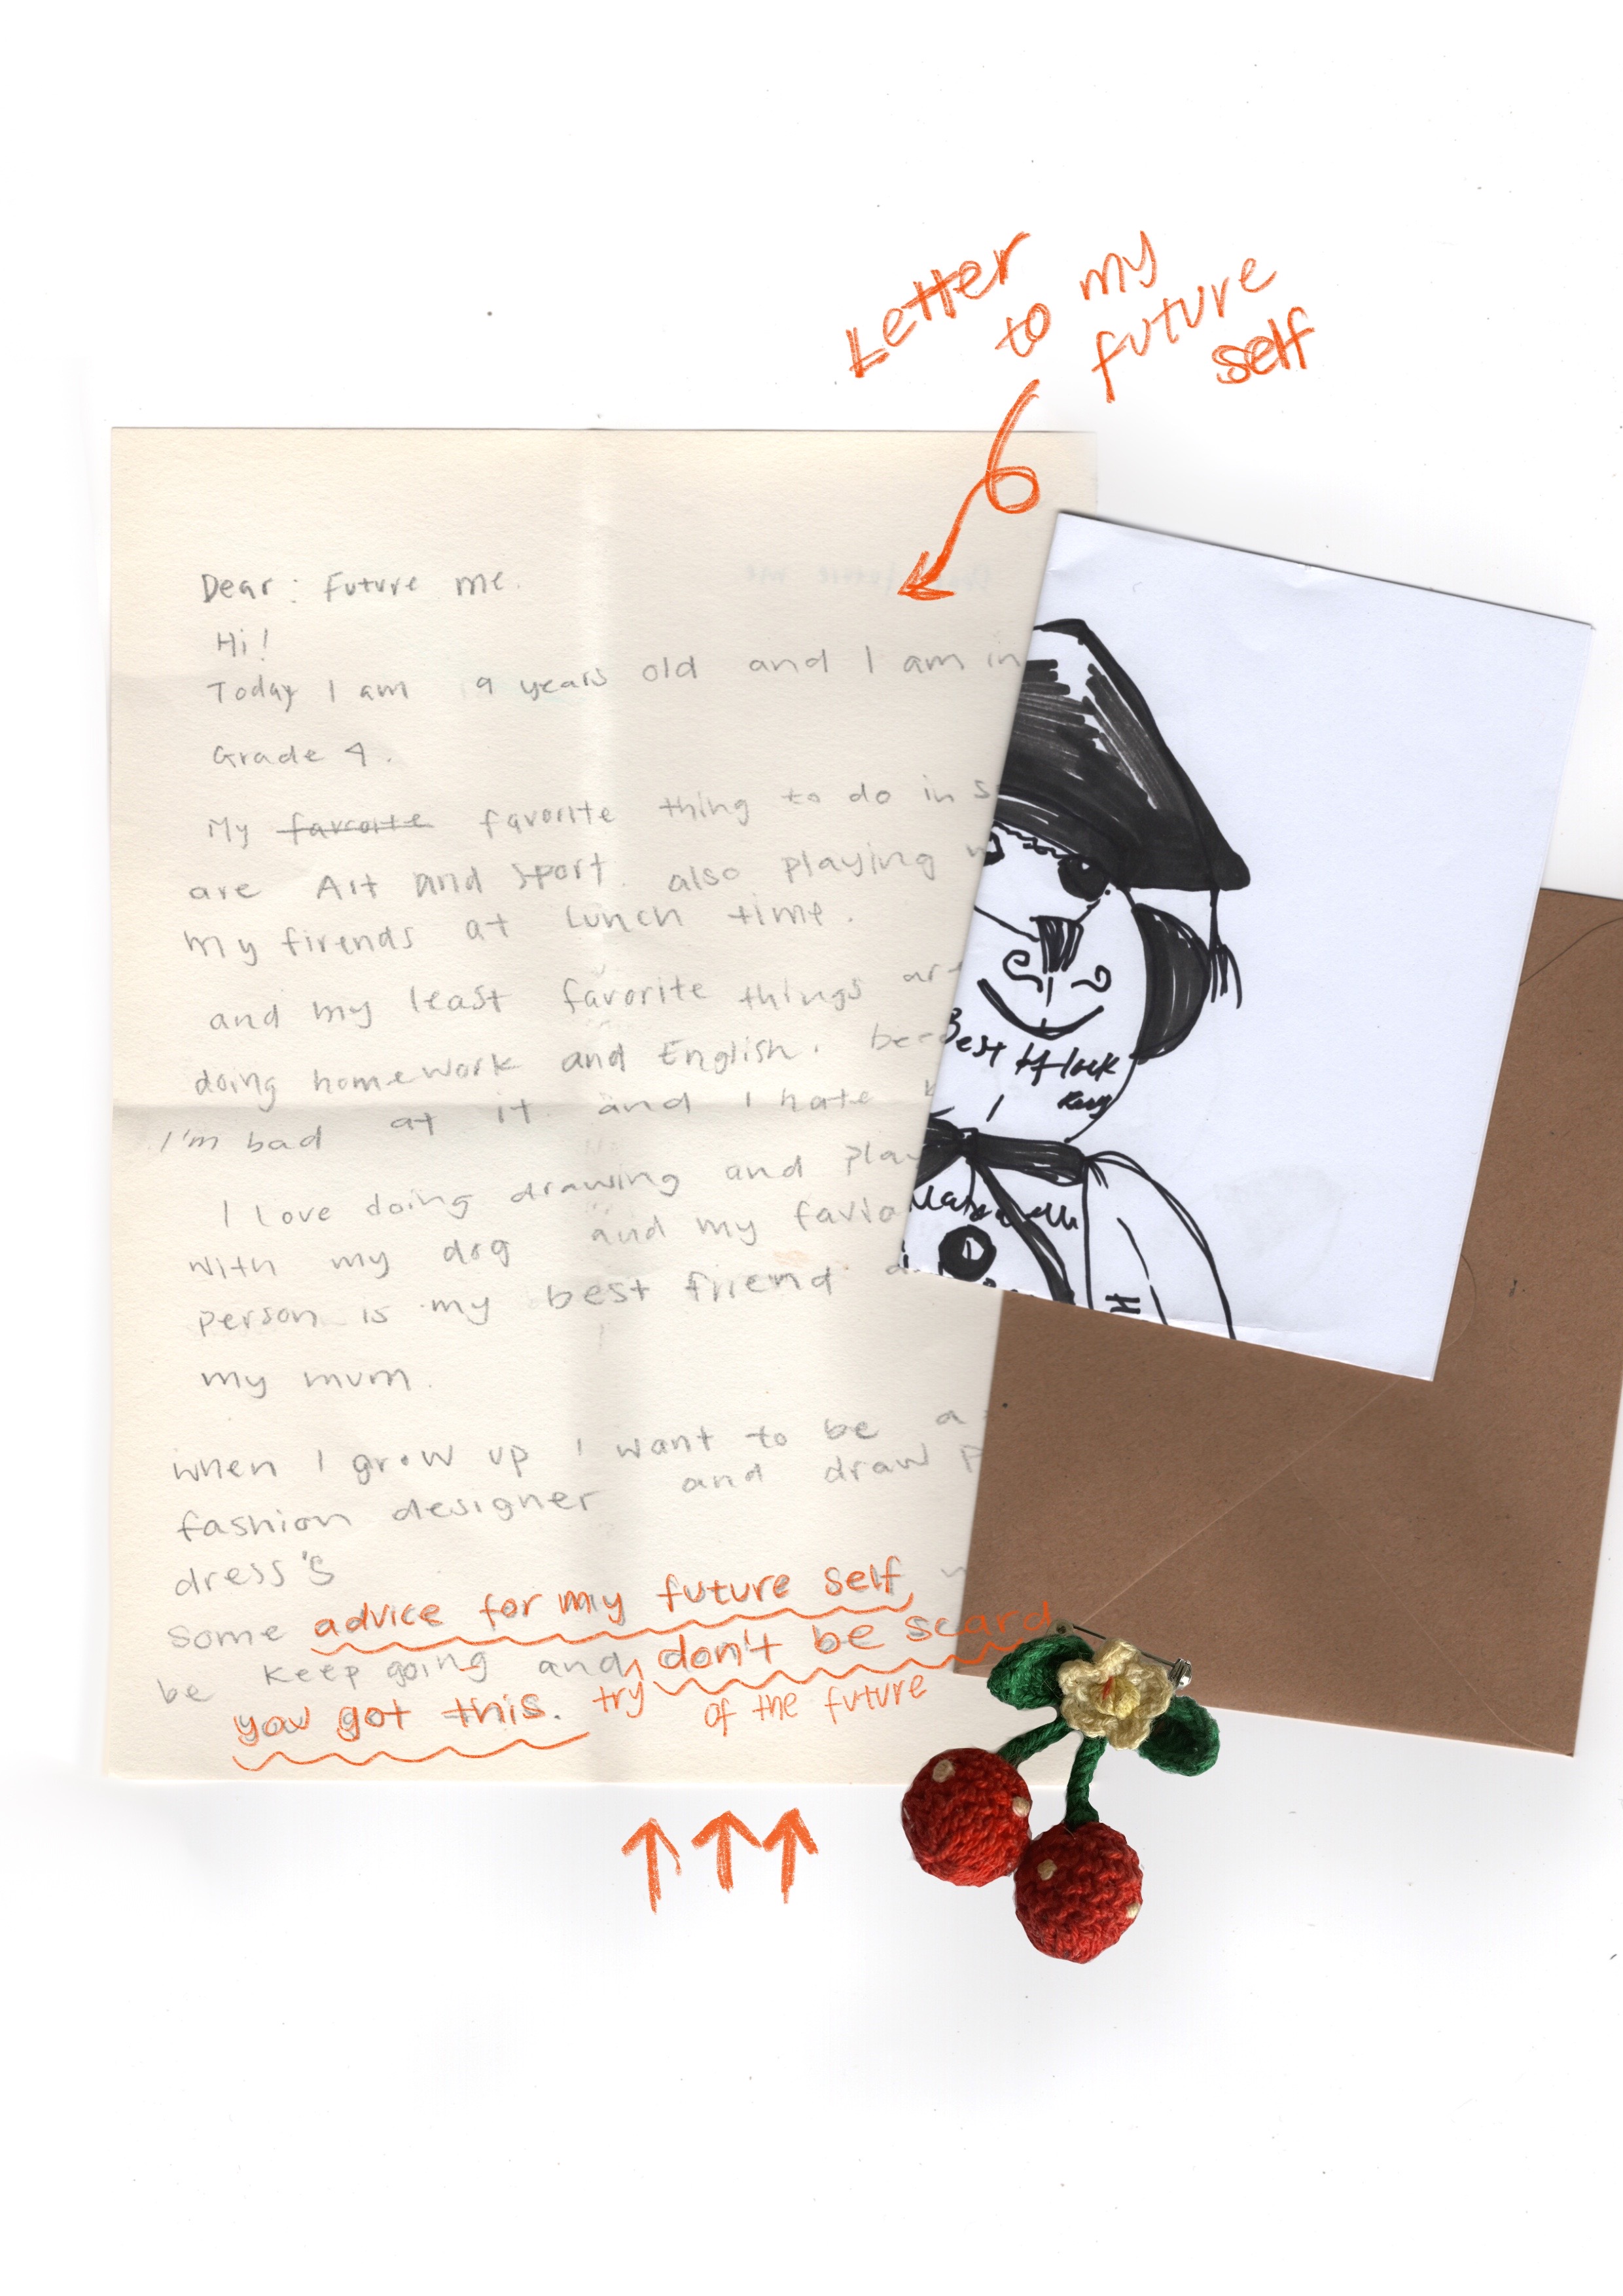 Letter
to my
future
self
Dear: Future me.
Hi!
Today I am 9 years old and I am in
Grade 4.
My favroite favorite thing to do in s
are Art and sport. also playing w
my firends at Lunch time.
and my least favorite things ar
doing homework and English. bec
I'm bad at it. and I hate
I love doing drawing and play
with my dog and my
person is my best friend
my mum.
when I grow up I want to be a
fashion designer and draw p
dress's
some advice for my future self
be keep going and don't be scard
you got this. try of the future
Best of luck